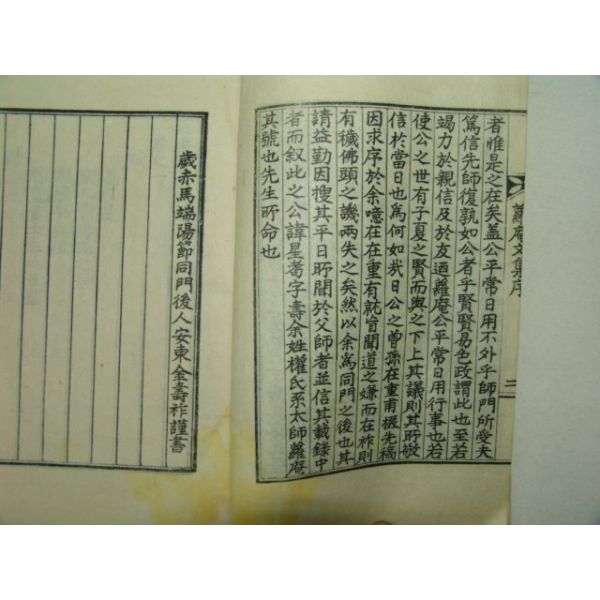 蘿庵文集序
三
者惟是之在矣盖公平常日用不外乎師門所受夫
篤信先師復孰如公者乎賢賢易色政謂此也至若
竭力於親信及於友迺蘿庵公平常日用行事也若
使公之世有子夏之賢而與之下上其議則其所敬
信於當日也爲何如哉日公之曾孫在重甫掇先稿
因求序於余噫在在重有就盲聞道之嫌而在祚則
有穢佛頭之譏兩失之矣然以余爲同門之後也其
請益勤因搜其平日所聞於父師者並信其載錄中
者而叙此之公諱星耉字壽余姓權氏系太師蘿庵
其號也先生所命也
歲赤馬端陽節同門後人安東金壽祚謹書